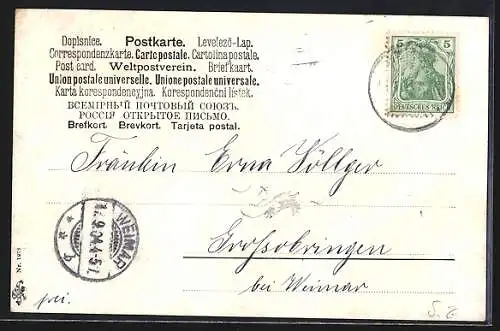 Dopisnice. Postkarte. Levelező-Lap.
Correspondenzkarte. Carte postale. Cartolina postale.
Post card. Weltpostverein. Briefkaart.
Union postale universelle. Unione postale universale.
Karta korespondencyjna. Korespondenční lístek.
ВСЕМІРНЫЙ ПОЧТОВЫЙ СОЮЗЪ.
РОССІЯ ОТКРЫТОЕ ПИСЬМО.
Brefkort. Brevkort. Tarjeta postal.
5 5
DEUTSCHES REICH
Fräulein Erna Völlger
Grossobringen
bei Weimar
WEIMAR
.9.04.4-5
frei.